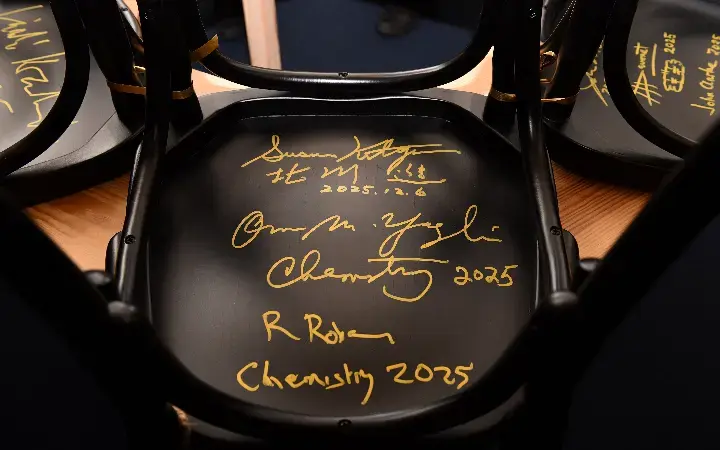 Susumu Kitagawa
北川 進
2025.12.6
Omar M. Yaghi
Chemistry 2025
R Robson
Chemistry 2025
2025
John Clarke 2025